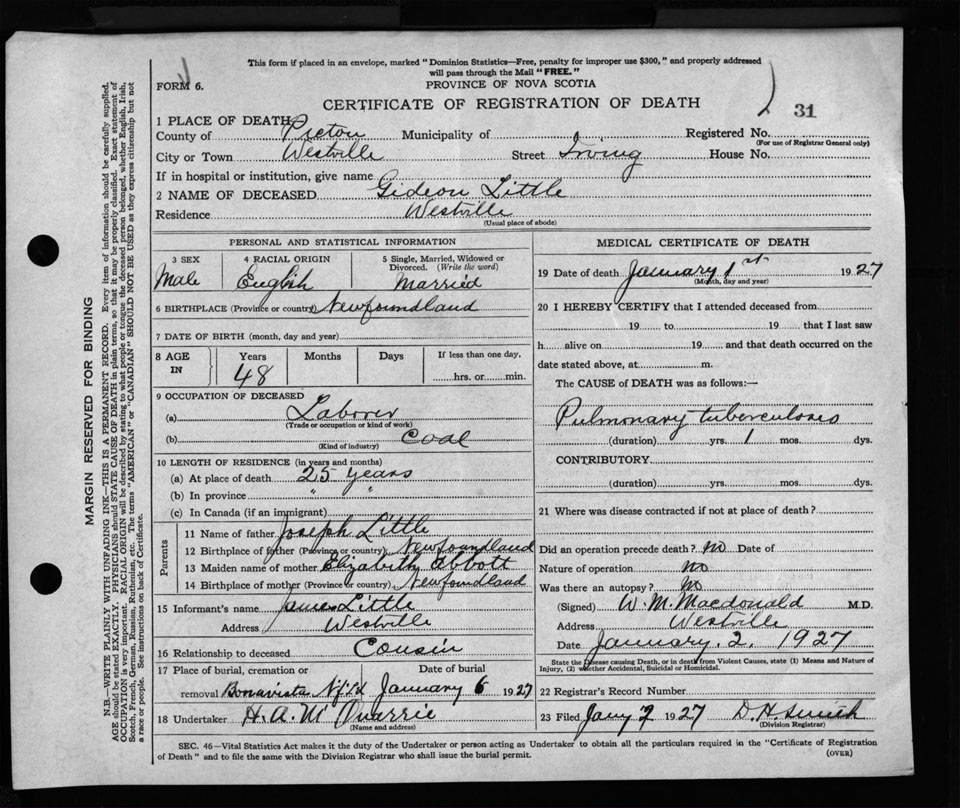 This form if placed in an envelope, marked "Dominion Statistics—Free, penalty for improper use $300," and properly addressed
will pass through the Mail "FREE."
FORM 6.
PROVINCE OF NOVA SCOTIA
CERTIFICATE OF REGISTRATION OF DEATH
31
1 PLACE OF DEATH
County of Pictou Municipality of Registered No.
(For use of Registrar General only)
City or Town Westville Street Irving House No.
If in hospital or institution, give name
2 NAME OF DECEASED Gideon Little
Residence Westville
(Usual place of abode)
PERSONAL AND STATISTICAL INFORMATION
3 SEX 4 RACIAL ORIGIN 5 Single, Married, Widowed or
Divorced. (Write the word)
Male English Married
6 BIRTHPLACE (Province or country) Newfoundland
7 DATE OF BIRTH (month, day and year)
8 AGE IN Years Months Days If less than one day,
48 hrs. or min.
9 OCCUPATION OF DECEASED
(a) Laborer
(Trade or occupation or kind of work)
(b) Coal
(Kind of industry)
10 LENGTH OF RESIDENCE (in years and months)
(a) At place of death 25 years
(b) In province " "
(c) In Canada (if an immigrant)
Parents
11 Name of father Joseph Little
12 Birthplace of father (Province or country) Newfoundland
13 Maiden name of mother Elizabeth Abbott
14 Birthplace of mother (Province or country) Newfoundland
15 Informant's name James Little
Address Westville
16 Relationship to deceased Cousin
17 Place of burial, cremation or Date of burial
removal Bonavista Nf'ld January 6 1927
18 Undertaker H. A. McQuarrie
(Name and address)
MEDICAL CERTIFICATE OF DEATH
19 Date of death January 1st 1927
(Month, day and year)
20 I HEREBY CERTIFY that I attended deceased from
19 to 19 that I last saw
h alive on 19 and that death occurred on the
date stated above, at m.
The CAUSE of DEATH was as follows:—
Pulmonary tuberculosis
(duration) yrs. 1 mos. dys.
CONTRIBUTORY
(duration) yrs. mos. dys.
21 Where was disease contracted if not at place of death?
Did an operation precede death? no Date of
Nature of operation no
Was there an autopsy? no
(Signed) W. M. Macdonald M.D.
Address Westville
Date January 2, 1927
State the Disease causing Death, or in death from Violent Causes, state (1) Means and Nature of
Injury, (2) whether Accidental, Suicidal or Homicidal.
22 Registrar's Record Number
23 Filed Jany 2 1927 D. H.
(Division Registrar)
SEC. 46—Vital Statistics Act makes it the duty of the Undertaker or person acting as Undertaker to obtain all the particulars required in the "Certificate of Registration
of Death" and to file the same with the Division Registrar who shall issue the burial permit.
(OVER)
MARGIN RESERVED FOR BINDING
N.B.—WRITE PLAINLY WITH UNFADING INK—THIS IS A PERMANENT RECORD. Every item of information should be carefully supplied.
AGE should be stated EXACTLY. PHYSICIANS should STATE CAUSE OF DEATH in plain terms, so that it may be properly classified. Exact statement of
OCCUPATION is very important. RACIAL ORIGIN will be described by stating to what people or tongue the deceased person belonged, whether English, Irish,
Scotch, French, German, Russian, Ruthenian, etc. The terms "AMERICAN" or "CANADIAN" SHOULD NOT BE USED as they express citizenship but not
a race or people. See instructions on back of Certificate.